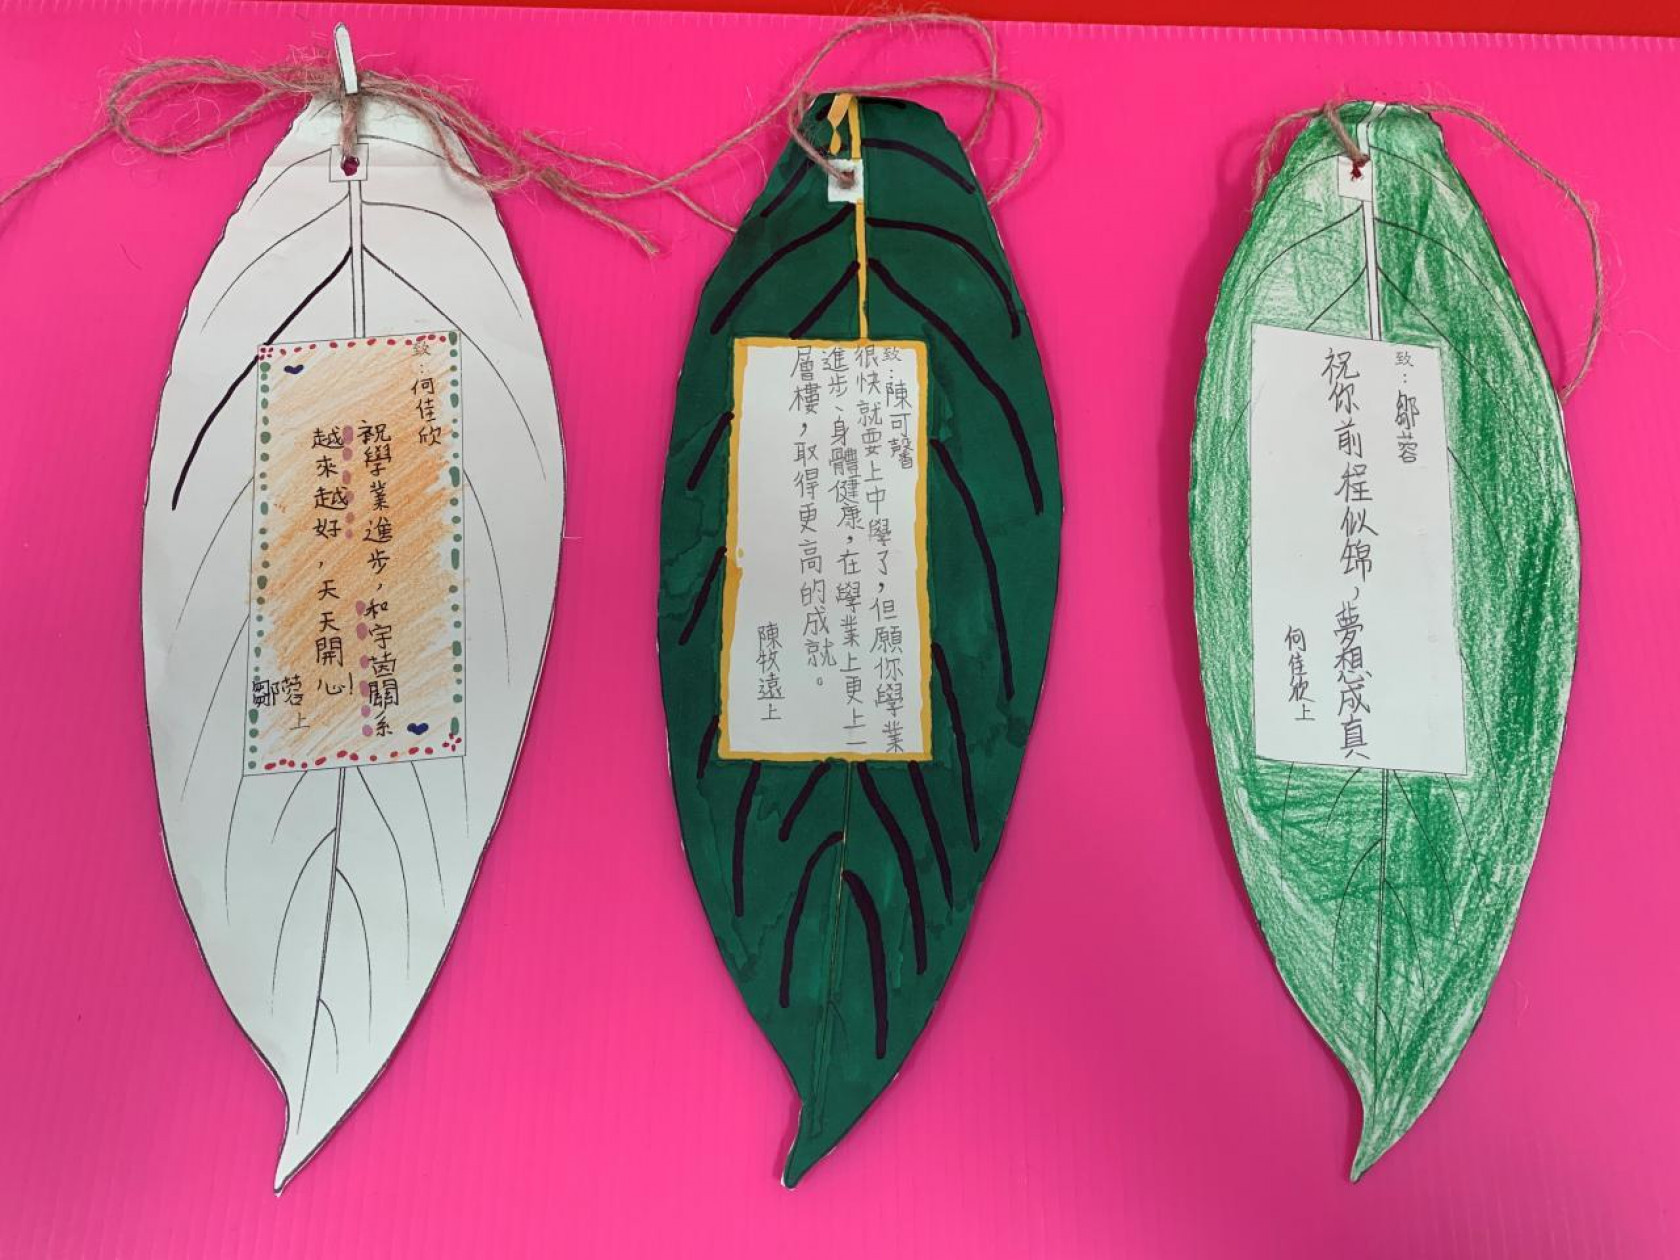 致：何佳欣
祝學業進步，和宇茵關系
越來越好，天天開心！
鄒蓉上
致：陳可馨
很快就要上中學了，但願你學業
進步、身體健康，在學業上更上一
層樓，取得更高的成就。
陳牧遠上
致：鄒蓉
祝你前程似錦，夢想成真
何佳欣上